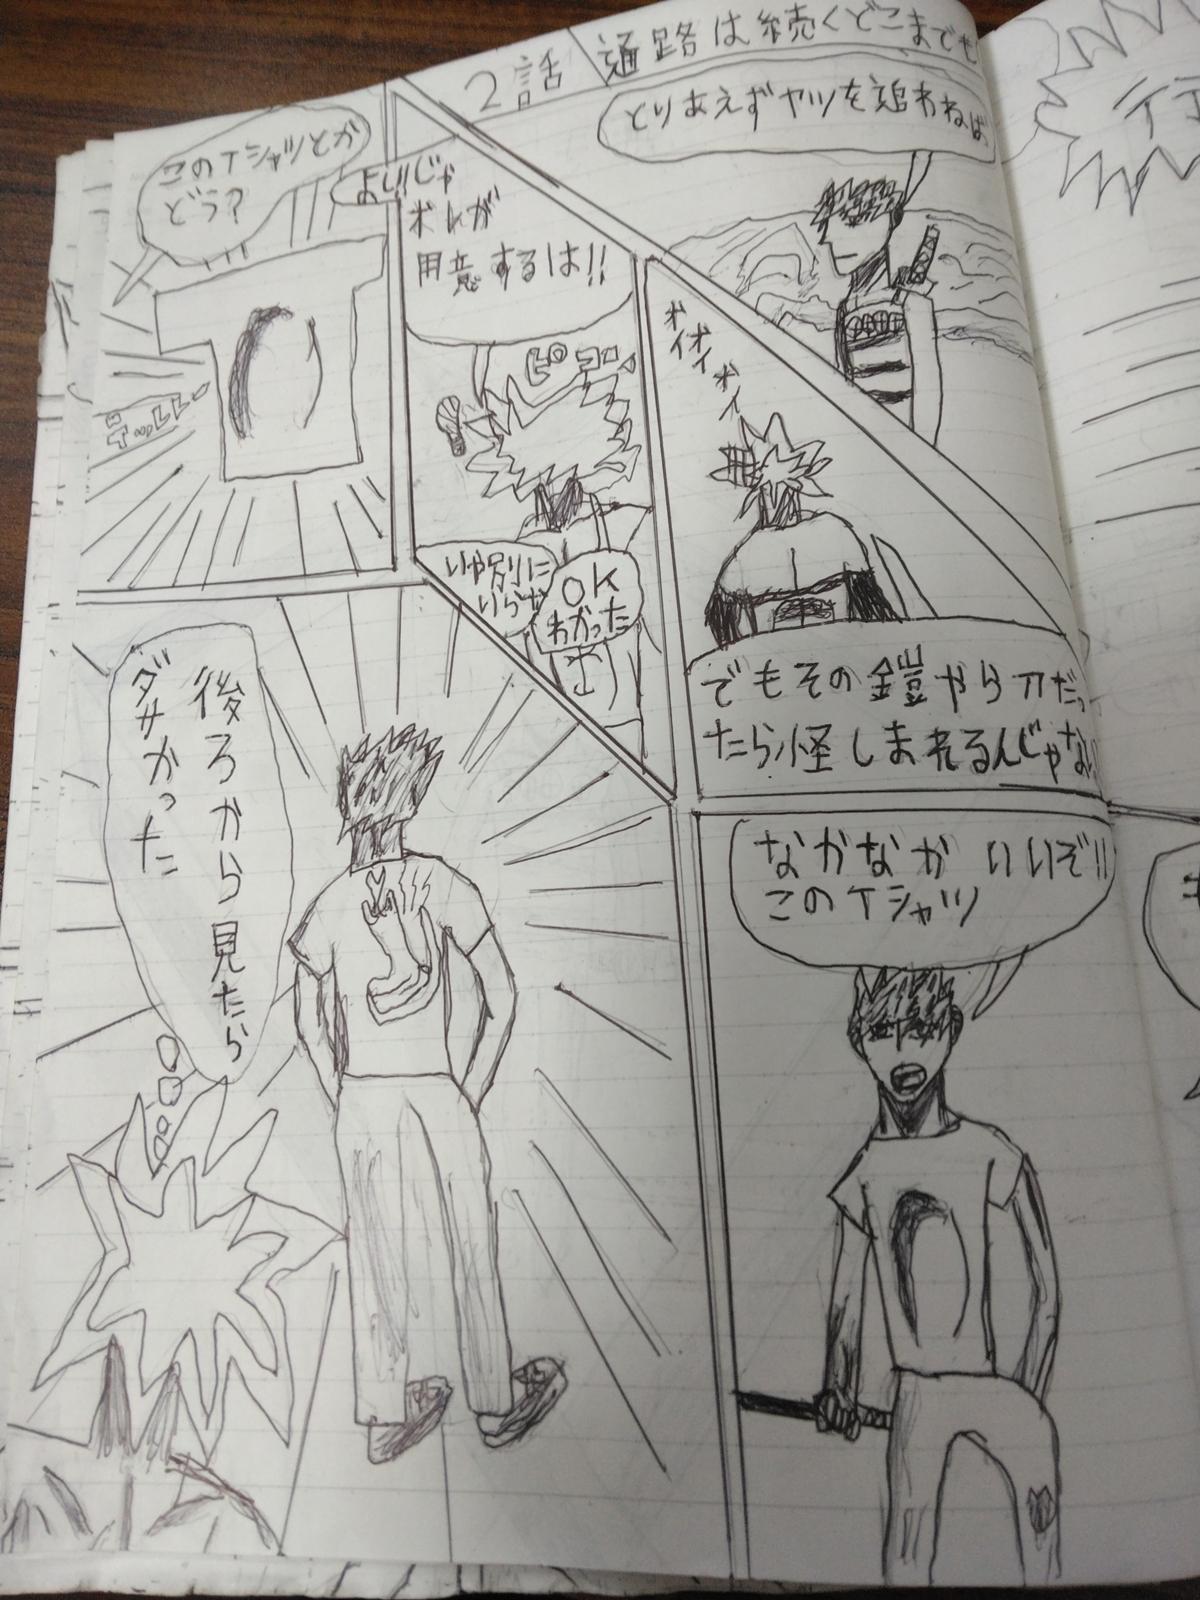 2話 通路は続くどこまでも
とりあえずヤツを追わねば
オイオイオイオイ
でもその鎧やら刀だっ
たら怪しまれるんじゃない
よし!!じゃ
オレが
用意するは!!
ピコン
いや別に
いらな
OK
わかった
このTシャツとか
どう?
なかなかいいぞ!!
このTシャツ
後ろから見たら
ダサかった